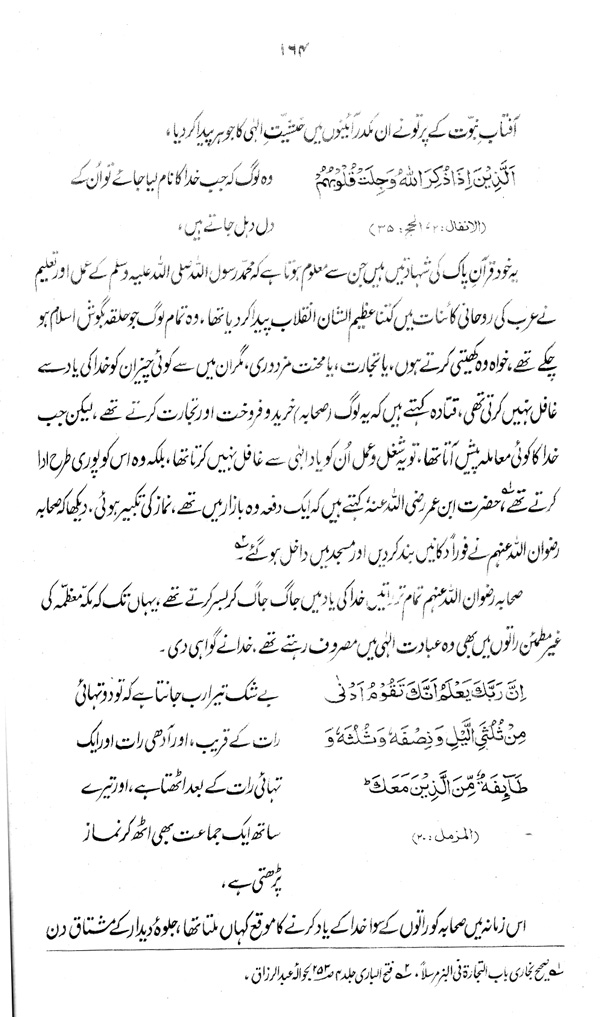 ۱۶۴
آفتابِ نبوت کے پرتو نے ان مکدر آئینوں میں خشیتِ الٰہی کا جوہر پیدا کر دیا،
اَلَّذِیْنَ اِذَا ذُکِرَ اللّٰہُ وَجِلَتْ قُلُوْبُہُمْ وہ لوگ کہ جب خدا کا نام لیا جائے تو اُن کے
(الانفال: ۲ / الحج: ۳۵) دل دہل جاتے ہیں،
یہ خود قرآن پاک کی شہادتیں ہیں جن سے معلوم ہوتا ہے کہ محمد رسول اللہ صلی اللہ علیہ وسلم کے عمل اور تعلیم
نے عرب کی روحانی کائنات میں کتنا عظیم الشان انقلاب پیدا کر دیا تھا، وہ تمام لوگ جو حلقہ بگوش اسلام ہو
چکے تھے، خواہ وہ کھیتی کرتے ہوں، یا تجارت، یا محنت مزدوری، مگر ان میں سے کوئی چیز ان کو خدا کی یاد سے
غافل نہیں کرتی تھی، قتادہ کہتے ہیں کہ یہ لوگ (صحابہ) خرید و فروخت اور تجارت کرتے تھے، لیکن جب
خدا کا کوئی معاملہ پیش آتا تھا، تو یہ شغل و عمل اُن کو یاد الٰہی سے غافل نہیں کرتا تھا، بلکہ وہ اس کو پوری طرح ادا
کرتے تھے۱؎، حضرت ابن عمر رضی اللہ عنہٗ کہتے ہیں کہ ایک دفعہ وہ بازار میں تھے، نماز کی تکبیر ہوئی، دیکھا کہ صحابہ
رضوان اللہ عنہم نے فوراً دکانیں بند کر دیں اور مسجد میں داخل ہو گئے۲؎۔
صحابہ رضوان اللہ عنہم تمام تر راتیں خدا کی یاد میں جاگ جاگ کر بسر کرتے تھے، یہاں تک کہ مکہ معظمہ کی
غیر مطمئن راتوں میں بھی وہ عبادت الٰہی میں مصروف رہتے تھے، خدا نے گواہی دی۔
اِنَّ رَبَّکَ یَعْلَمُ اَنَّکَ تَقُوْمُ اَدْنٰی بے شک تیرا رب جانتا ہے کہ تو دو تہائی
مِنْ ثُلُثَیِ الَّیْلِ وَنِصْفَہٗ وَثُلُثَہٗ وَ رات کے قریب، اور آدھی رات اور ایک
طَآئِفَۃٌ مِّنَ الَّذِیْنَ مَعَکَ ؕ تہائی رات کے بعد اٹھتا ہے، اور تیرے
(المزمل: ۲۰) ساتھ ایک جماعت بھی اٹھ کر نماز
پڑھتی ہے،
اس زمانہ میں صحابہ کو راتوں کے سوا خدا کے یاد کرنے کا موقع کہاں ملتا تھا، جلوۂ دیدار کے مشتاق دن
۱؎ صحیح بخاری باب التجارۃ فی البز مرسلاً، ۲؎ فتح الباری جلد ۴ ص ۲۵۳ بحوالہ عبدالرزاق،